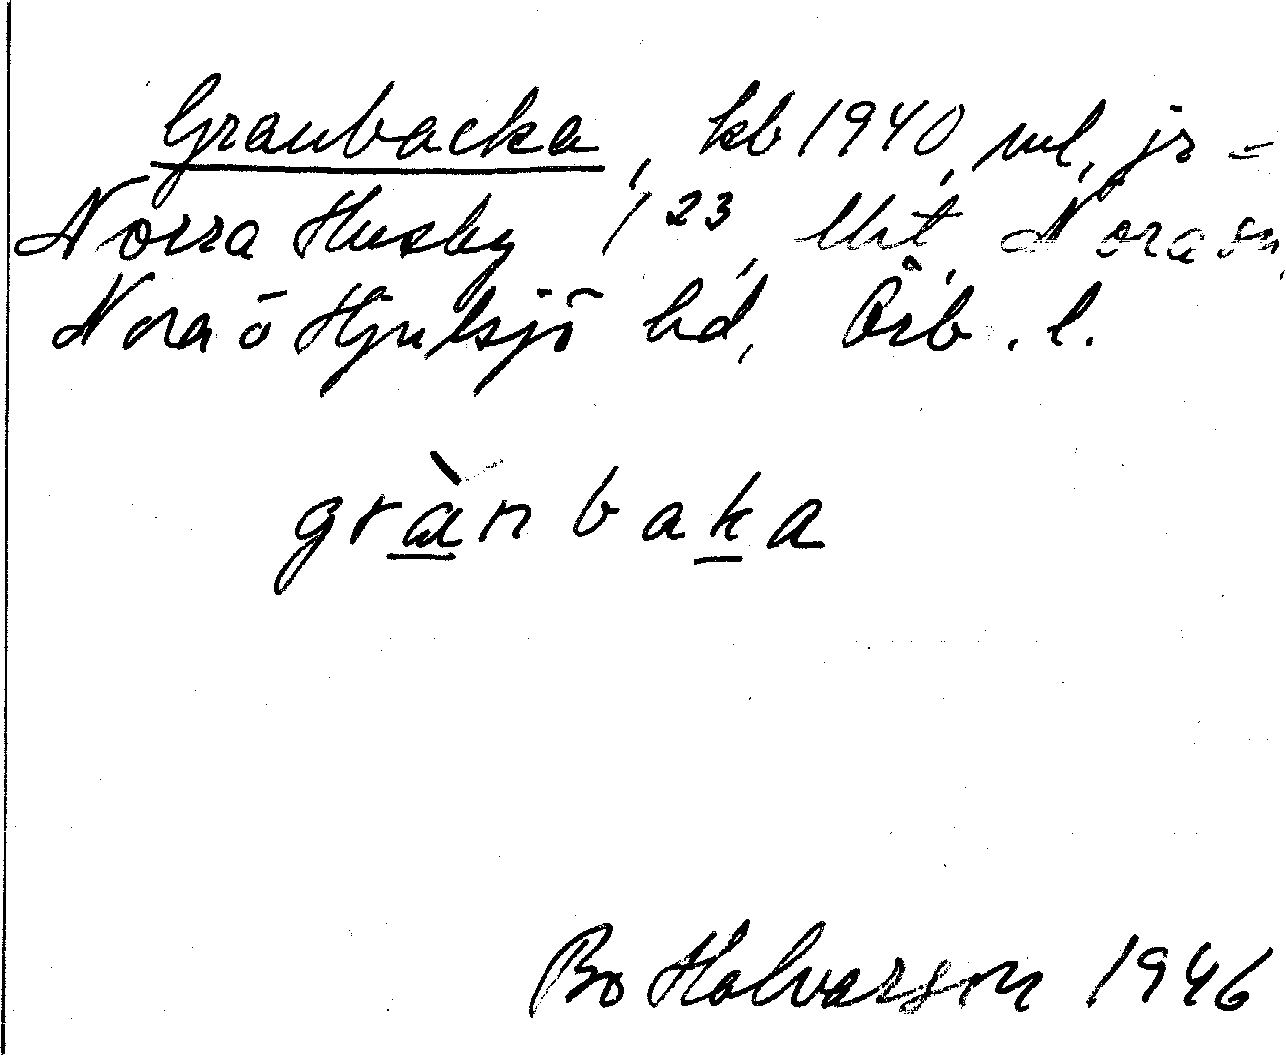 Granbacka, kb 1940, vid. jr =
Norra Husby 1 23, Nora sn,
Nora o Hjulsjö hd, Örb. l.
grànbaka
Bo Halvarson 1946